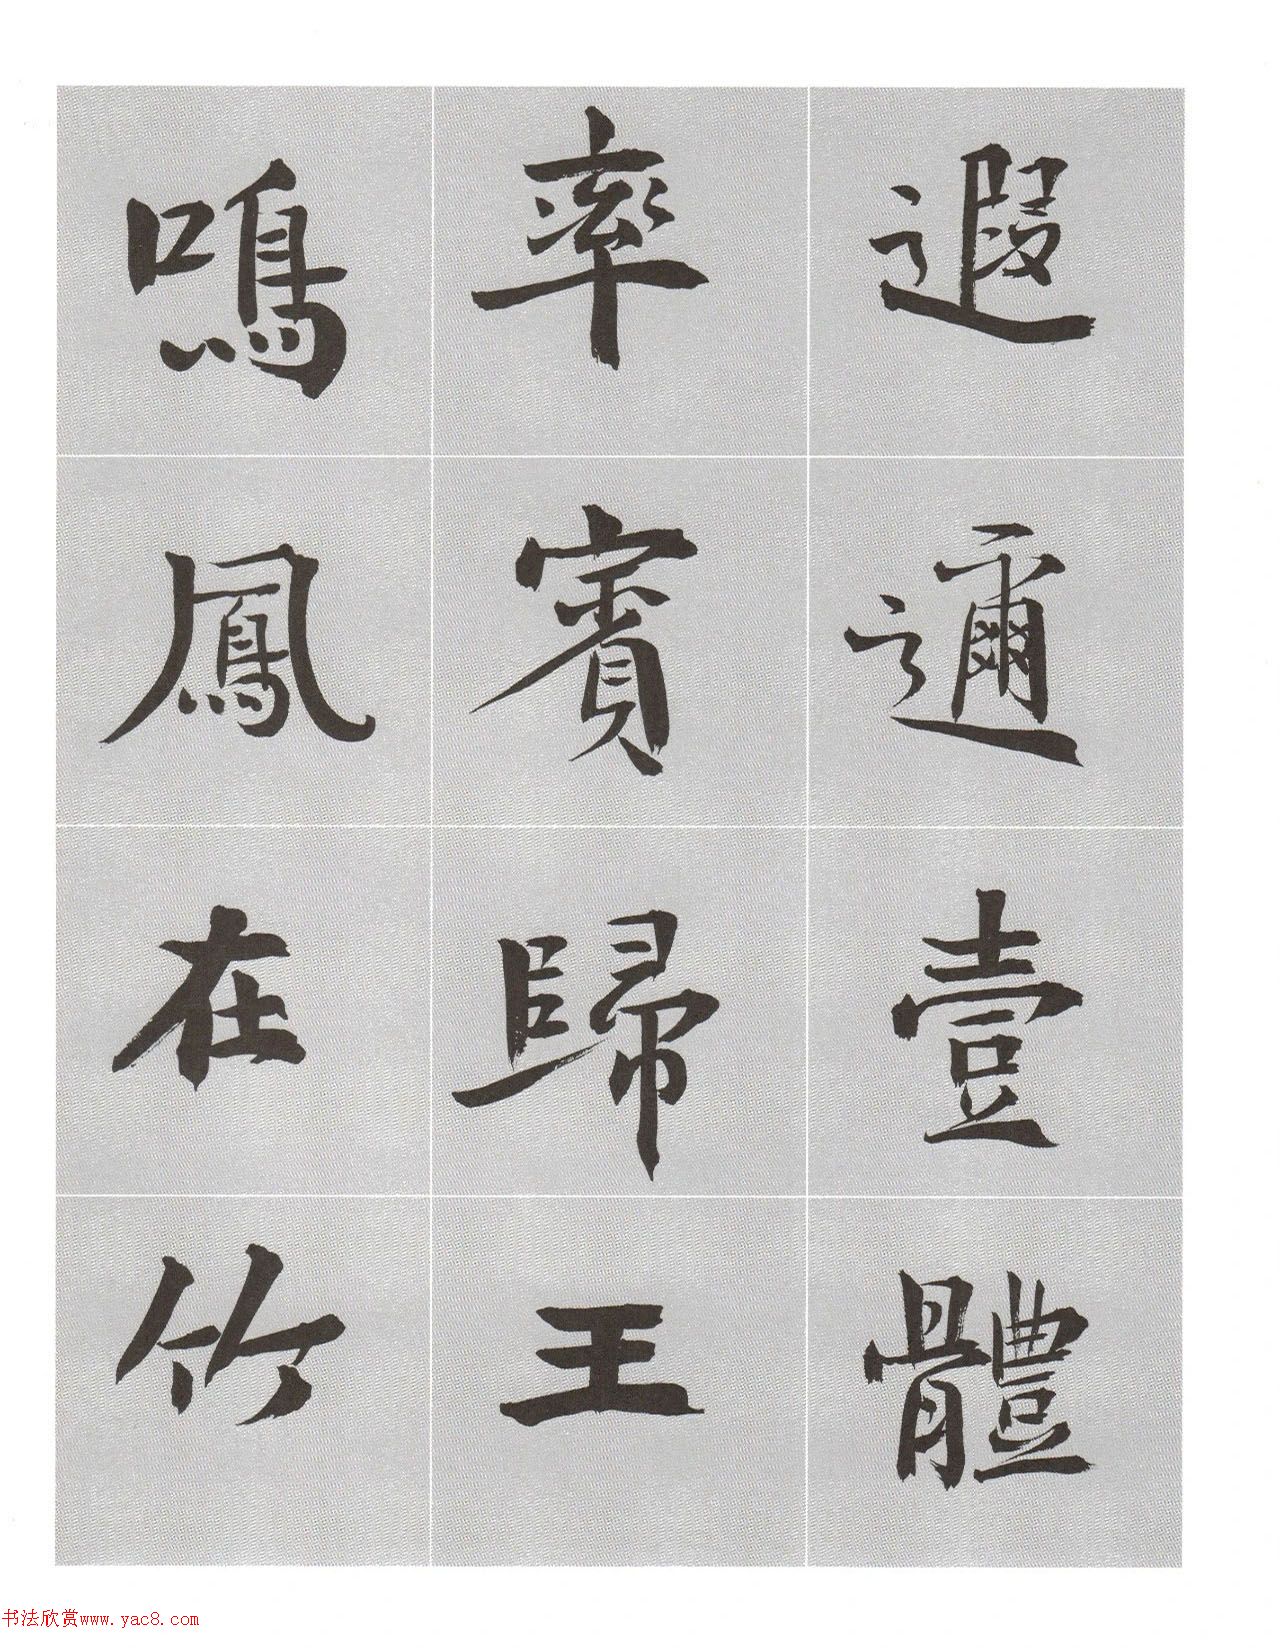 遐邇壹體
率賓歸王
鳴鳳在竹
书法欣赏www.yac8.com